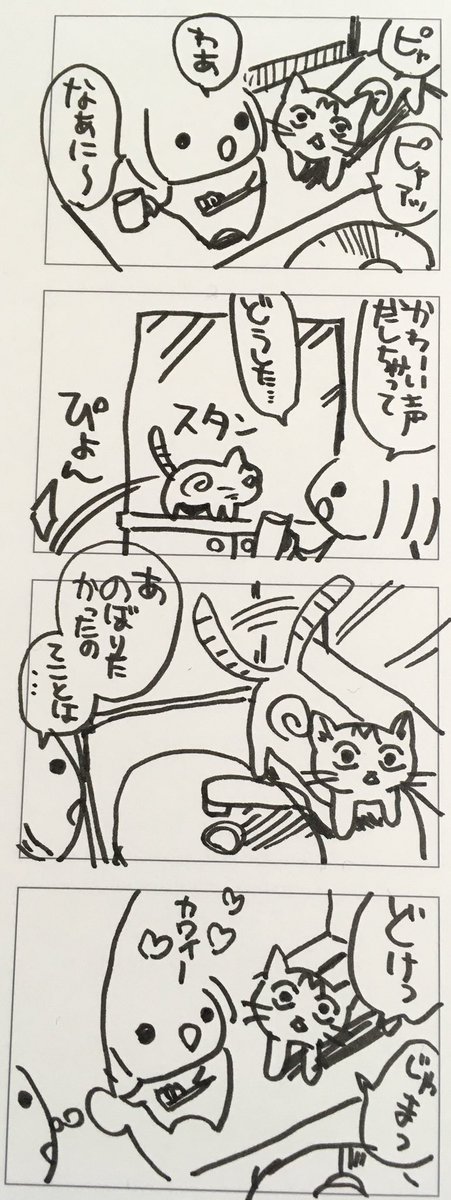 ピャ
ピャアッ
わあ
なあに〜
かわーい声
だしちゃって
どうした…
スタン
ぴょん
あ
のぼりた
かったの
てことは
…
どけっ
じゃまっ
カワイー